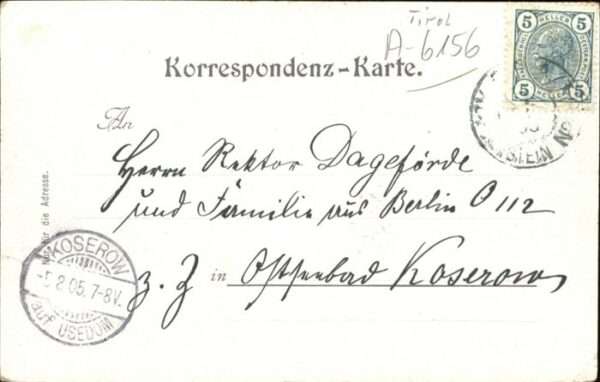 Tirol
A-6156
5 HELLER 5
5 HELLER 5
Korrespondenz-Karte.
An
Herrn Rektor Dageförde
und Familie aus Berlin O 112
z. Z in Ostseebad Koserow
Nur für die Adresse.
KOSEROW
-5.8.05.7-8V.
auf USEDOM